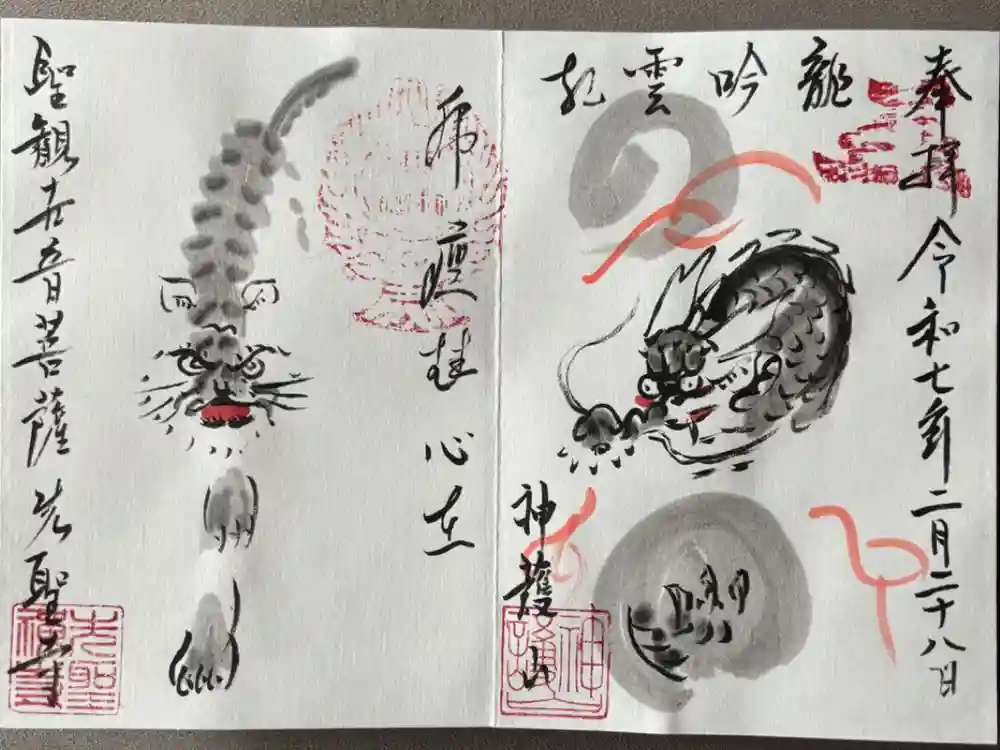 奉拝 令和七年二月二十八日
龍吟雲起
神護山
虎瘦雄心在
聖観世音菩薩 先聖寺